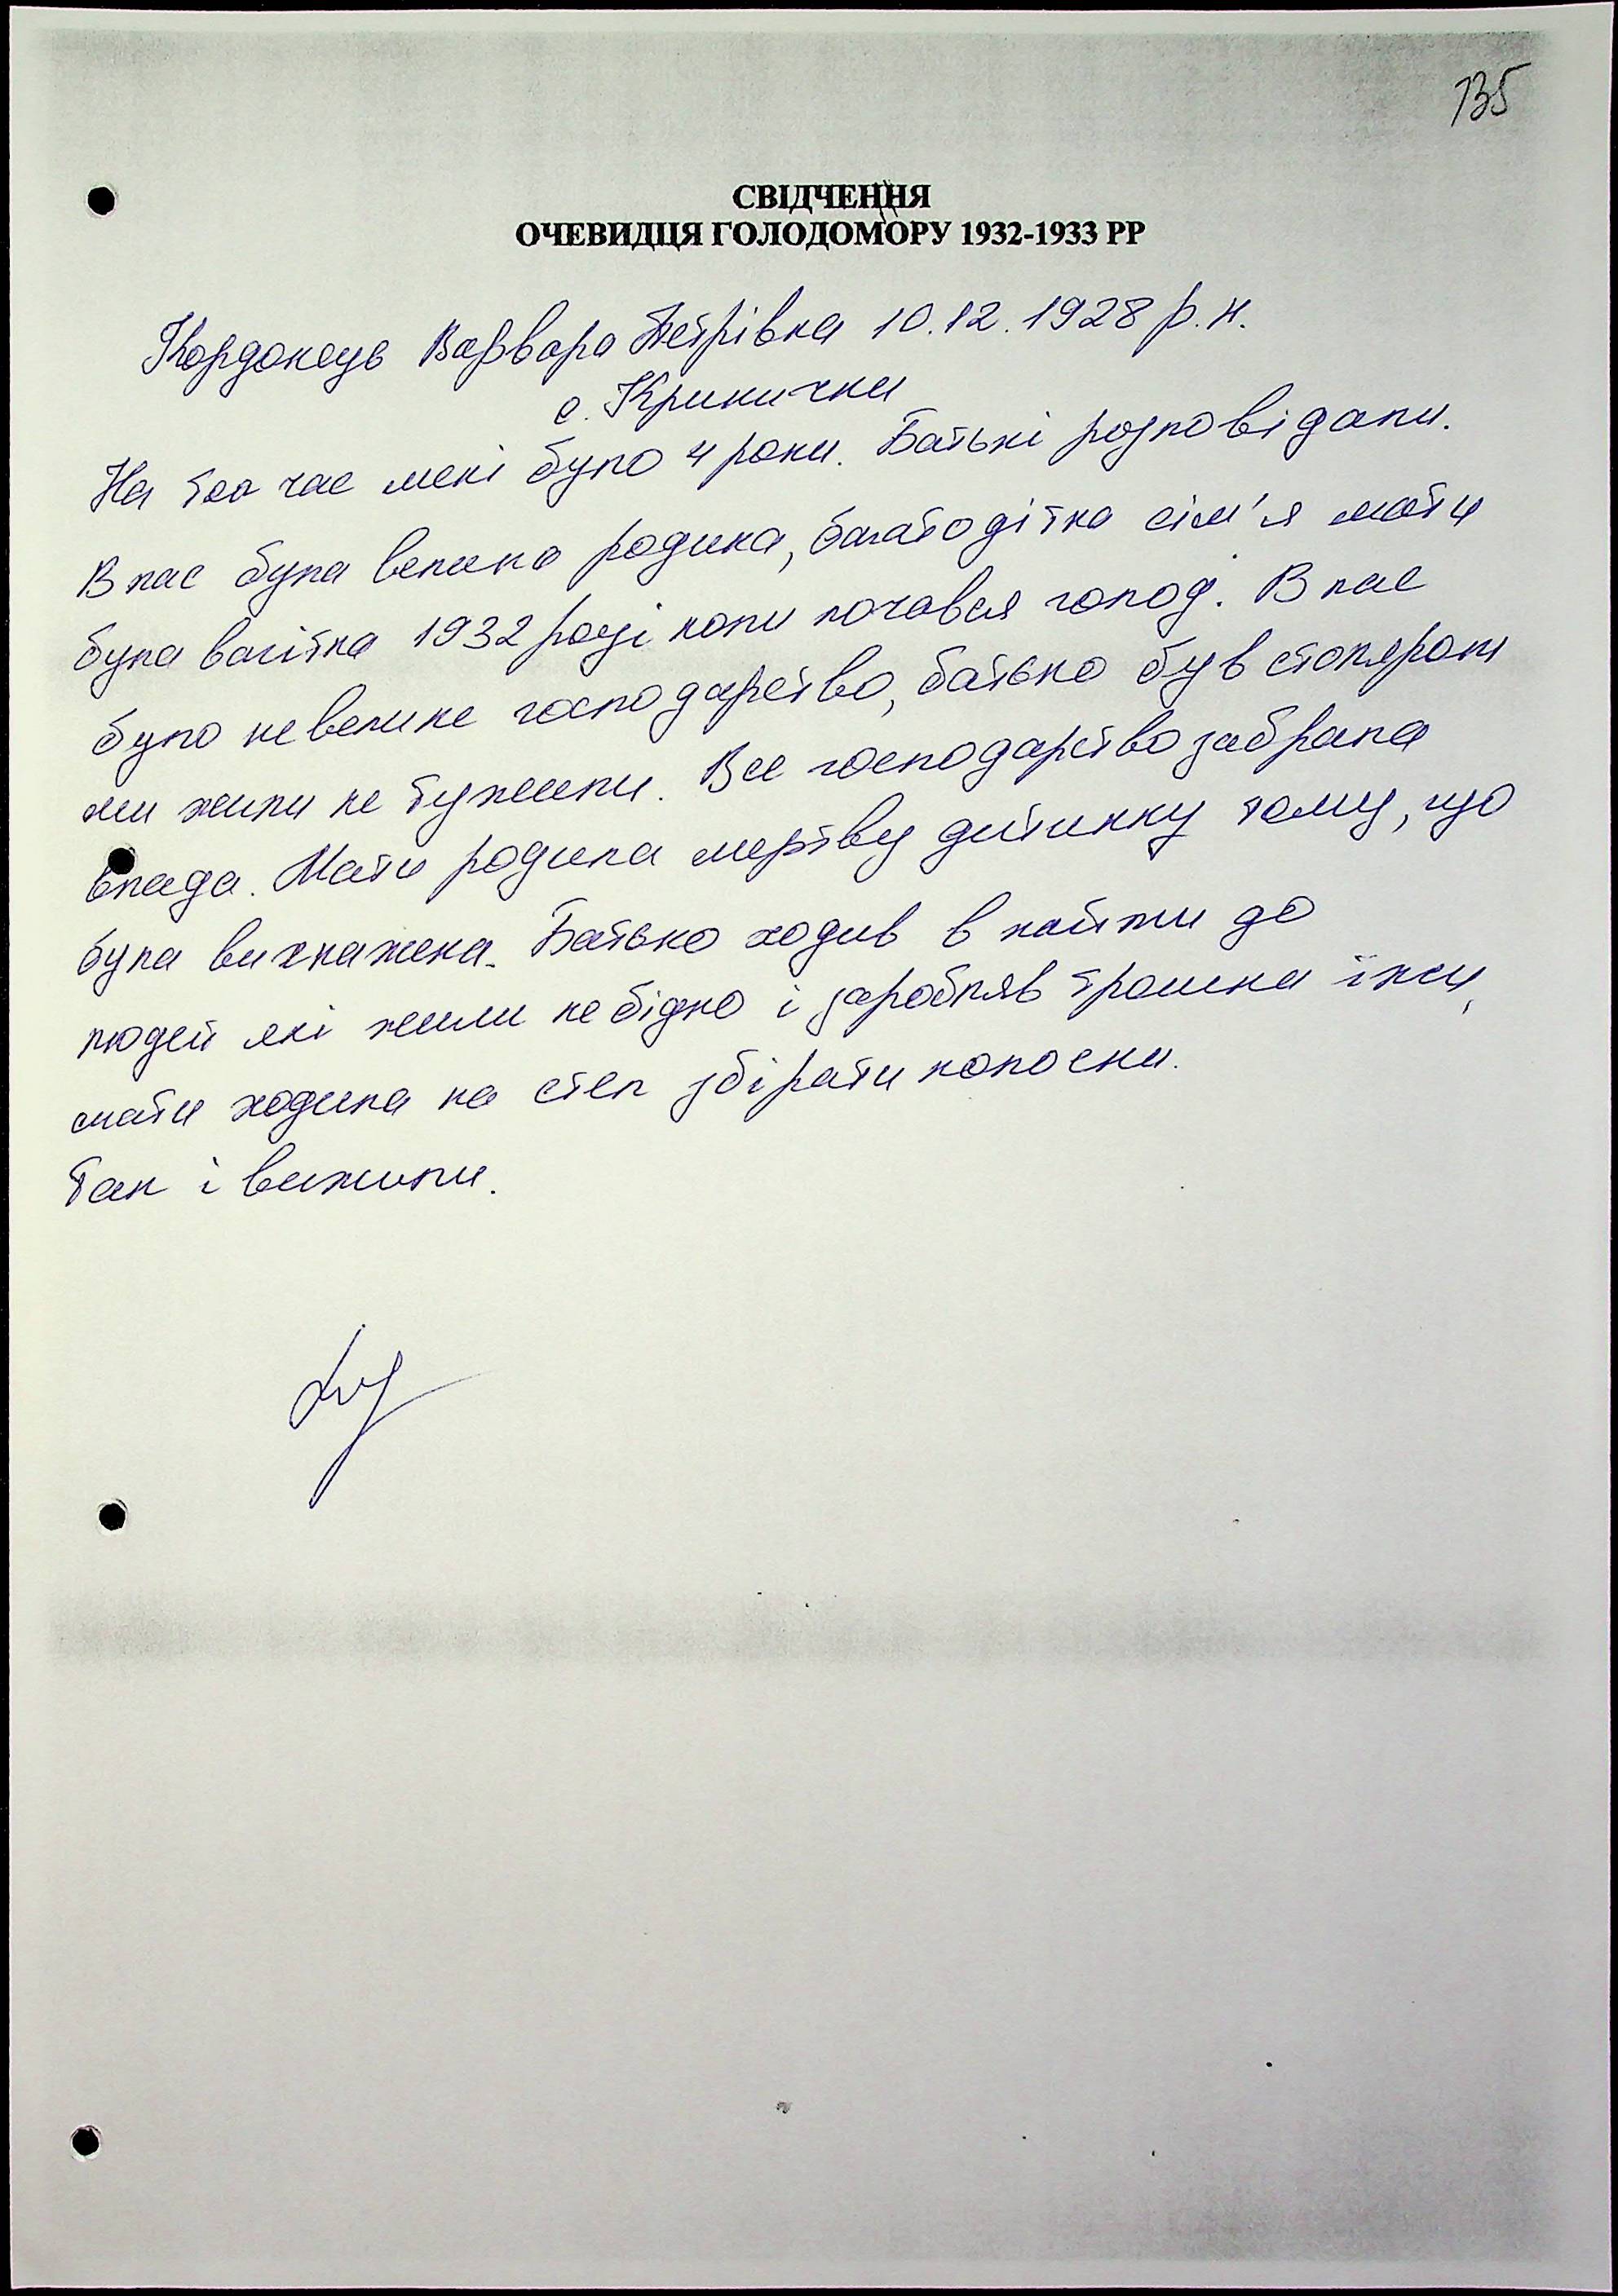 135
СВІДЧЕННЯ
ОЧЕВИДЦЯ ГОЛОДОМОРУ 1932-1933 РР
Кордонець Варвара Петрівна 10.12.1928 р.н.
с. Кринички
На той час мені було 4 роки. Батьки розповідали.
В нас була велика родина, багатодітна сім'я мати
була вагітна 1932 році коли почався голод. В нас
було невелике господарство, батько був столяром
ми жили не тужили. Все господарство забрала
влада. Мати родила мертву дитинку тому, що
була виснажена. Батько ходив в найми до
людей які жили небідно і заробляв трошки їжи,
мати ходила на степ збірати колоски.
Так і вижили.